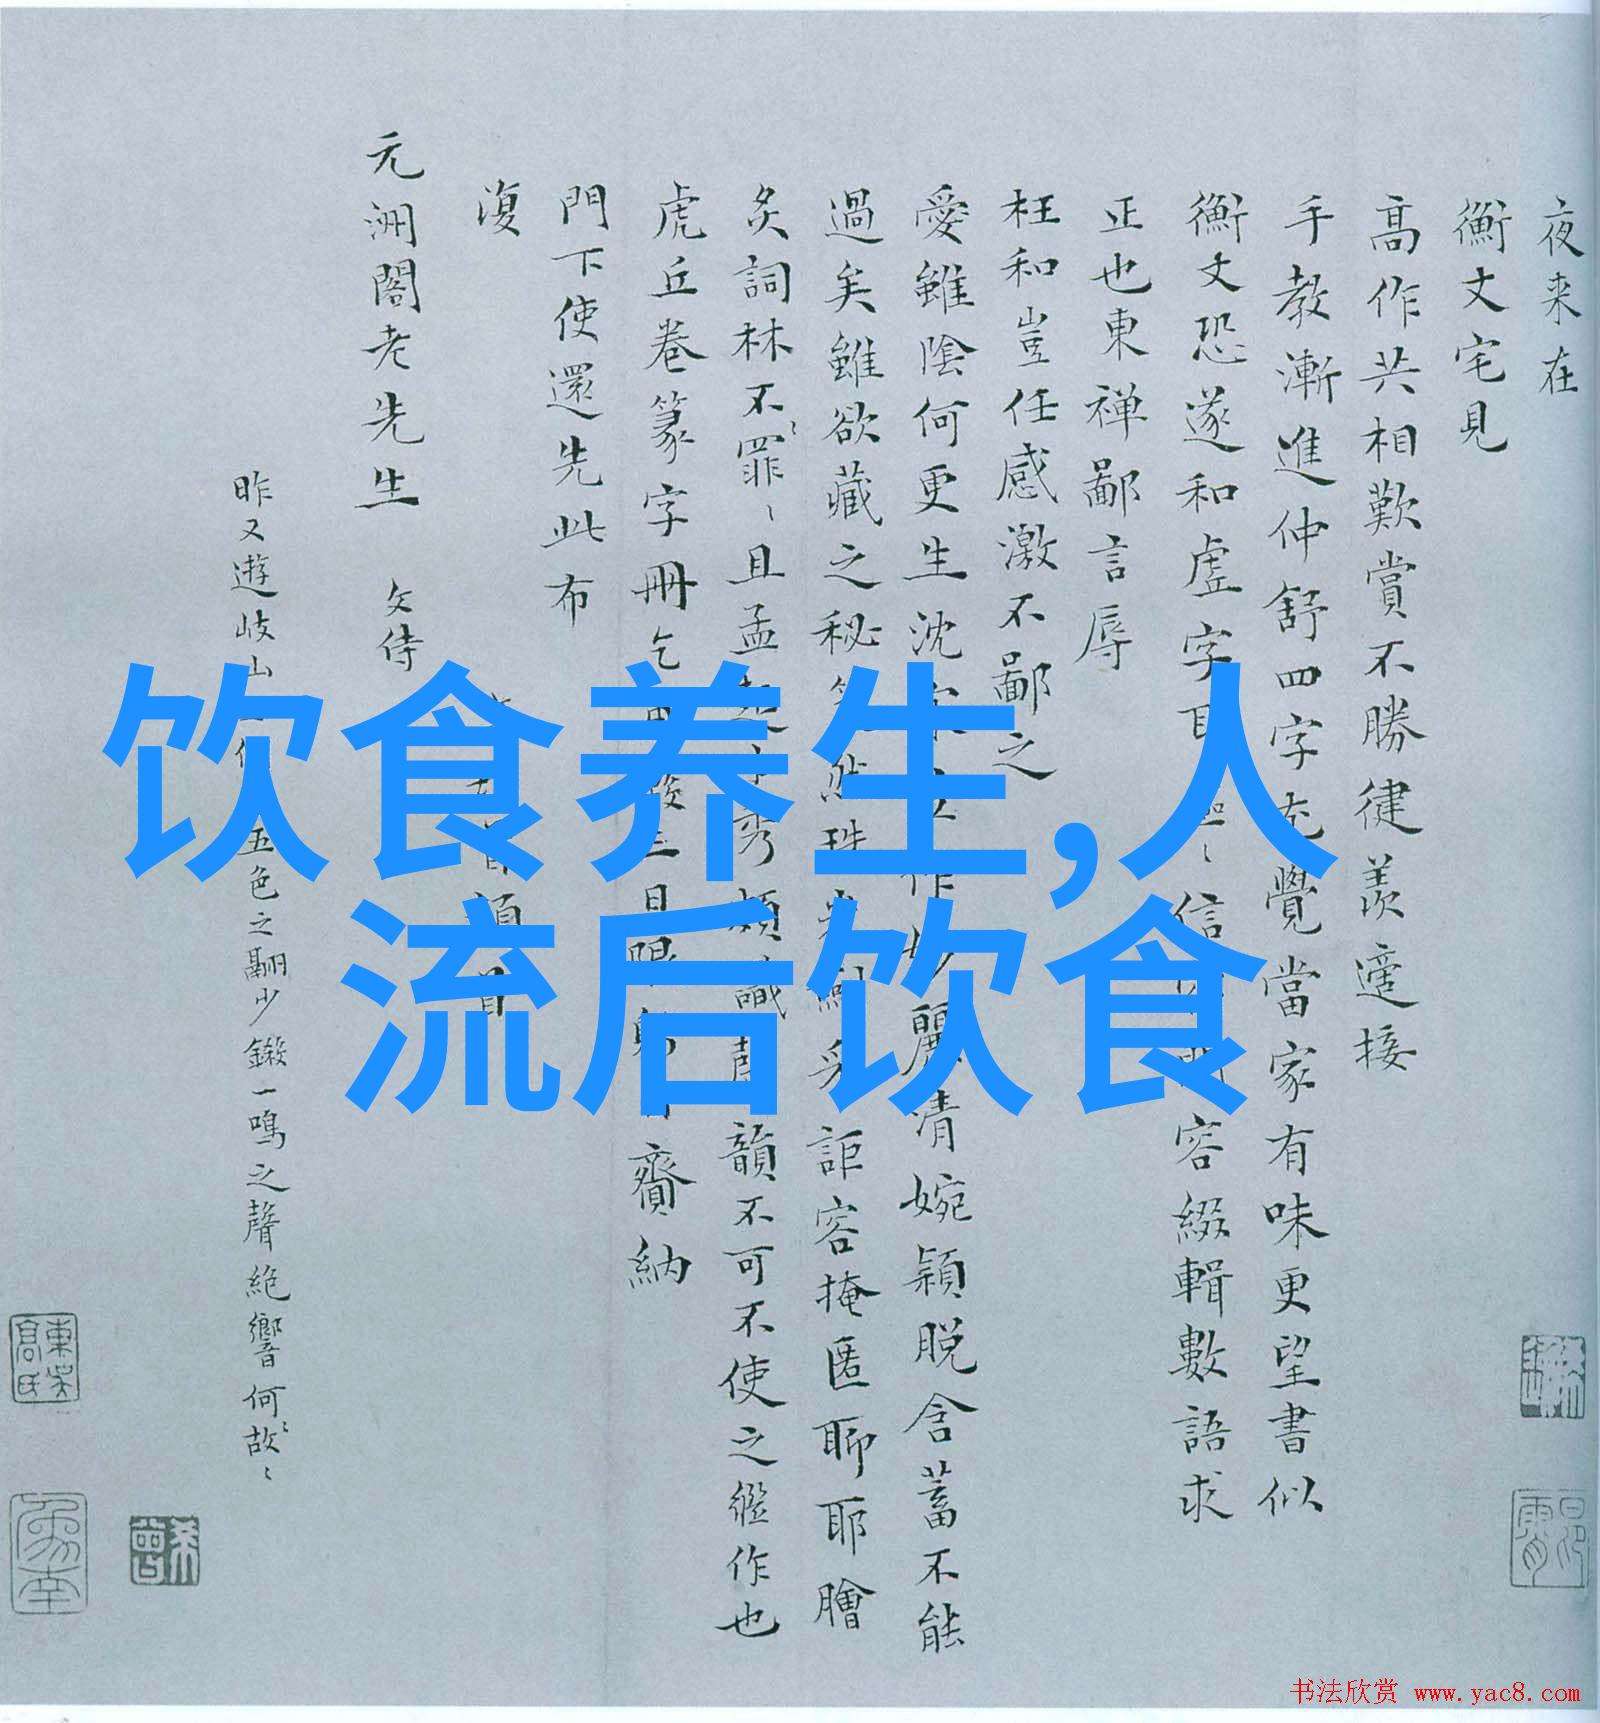 夜来在
衡丈宅見
髙作共相歎賞不勝健羨適接
手教漸進仲舒四字充覺當家有味更望書似
衡丈恐遂和虚字耳
信
容綴輯數語求
正也東禅鄙言辱
枉和豈任感激不鄙之
愛雖陰何更生沈
作妙麗清婉穎脱含蓄不能
過矣雖欲藏之秘
然珠
采詎容掩匿聊耶膾
炙詞林不罪〻且孟
秀
韻不可不使之繼作也
虎丘巻篆字冊乞
齎納
門下使還先此布
復
元洲閣老先生 文侍
頓首
昨又遊岐山
五色之翮少鎩一鳴之聲絶響何故〻
東吴髙氏
饮食养生,人
流后饮食
书法欣赏 www.yac8.com